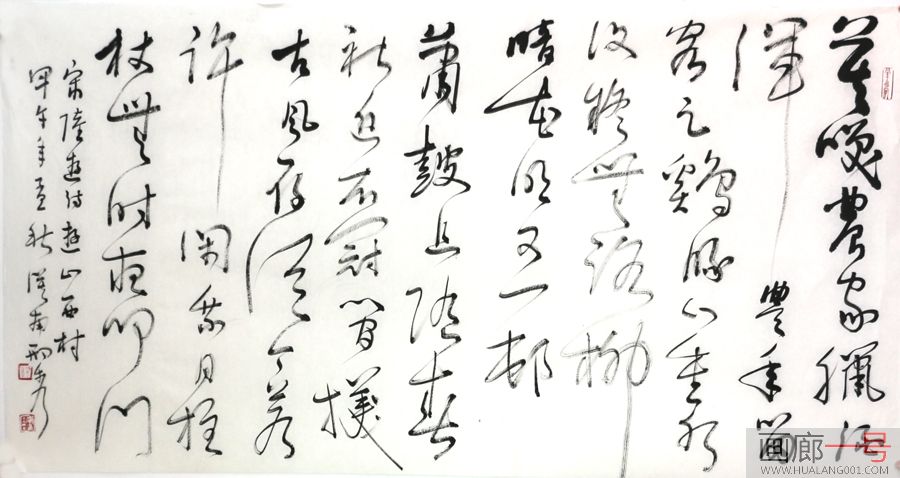 莫笑農家臘酒
渾豐年留
客足鷄豚山重水
複疑無路柳
暗花明又一村
蕭鼓追隨春
社近衣冠簡樸
古風存從今若
許閑乘月拄
杖無時夜叩門
宋陸遊詩遊山西村
甲午年孟秋漢南
画廊一号
WWW.HUALANG001.COM